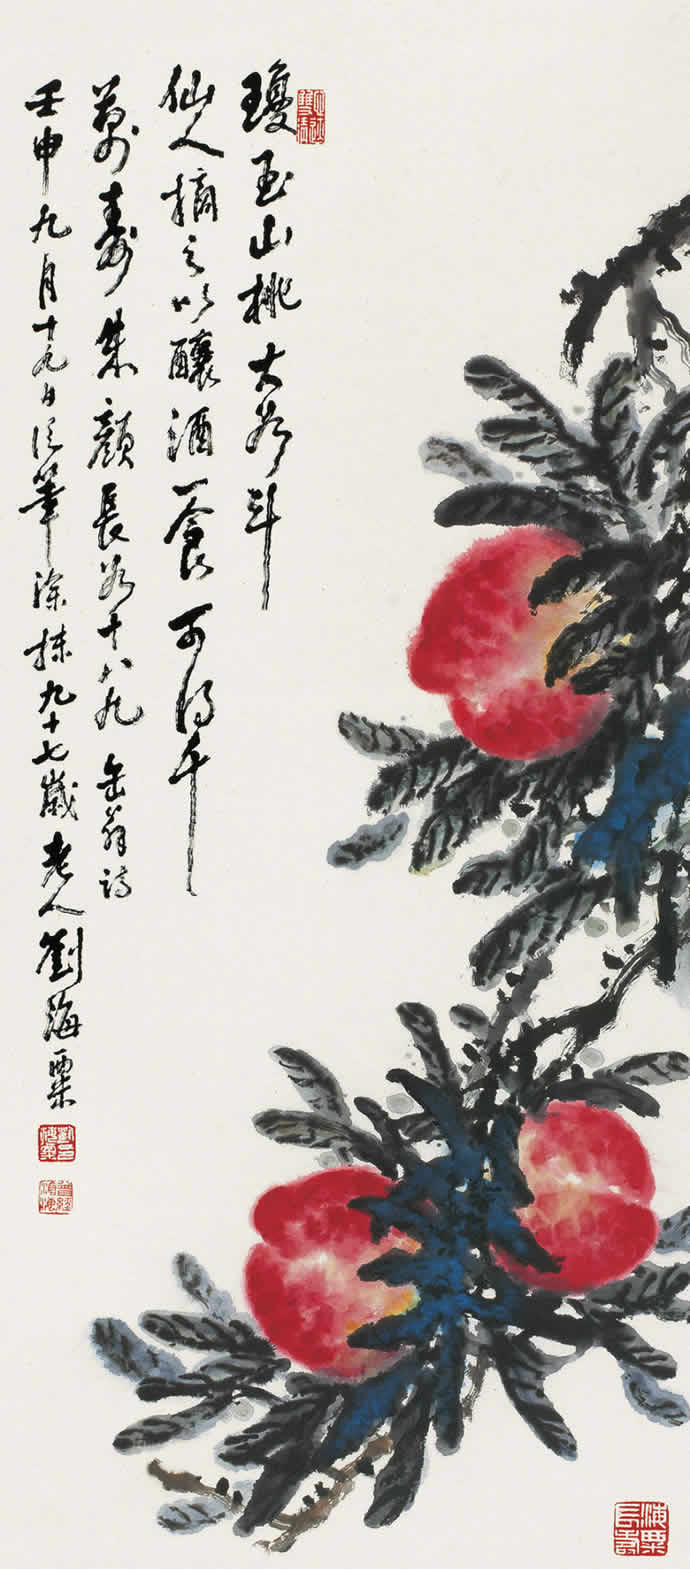 瓊玉山桃大如斗
仙人摘之以釀酒一食可得千
萬壽朱顏長如十八九 缶翁詩
壬申九月十九日 筆 九十七歲老人劉海粟
海粟
長壽